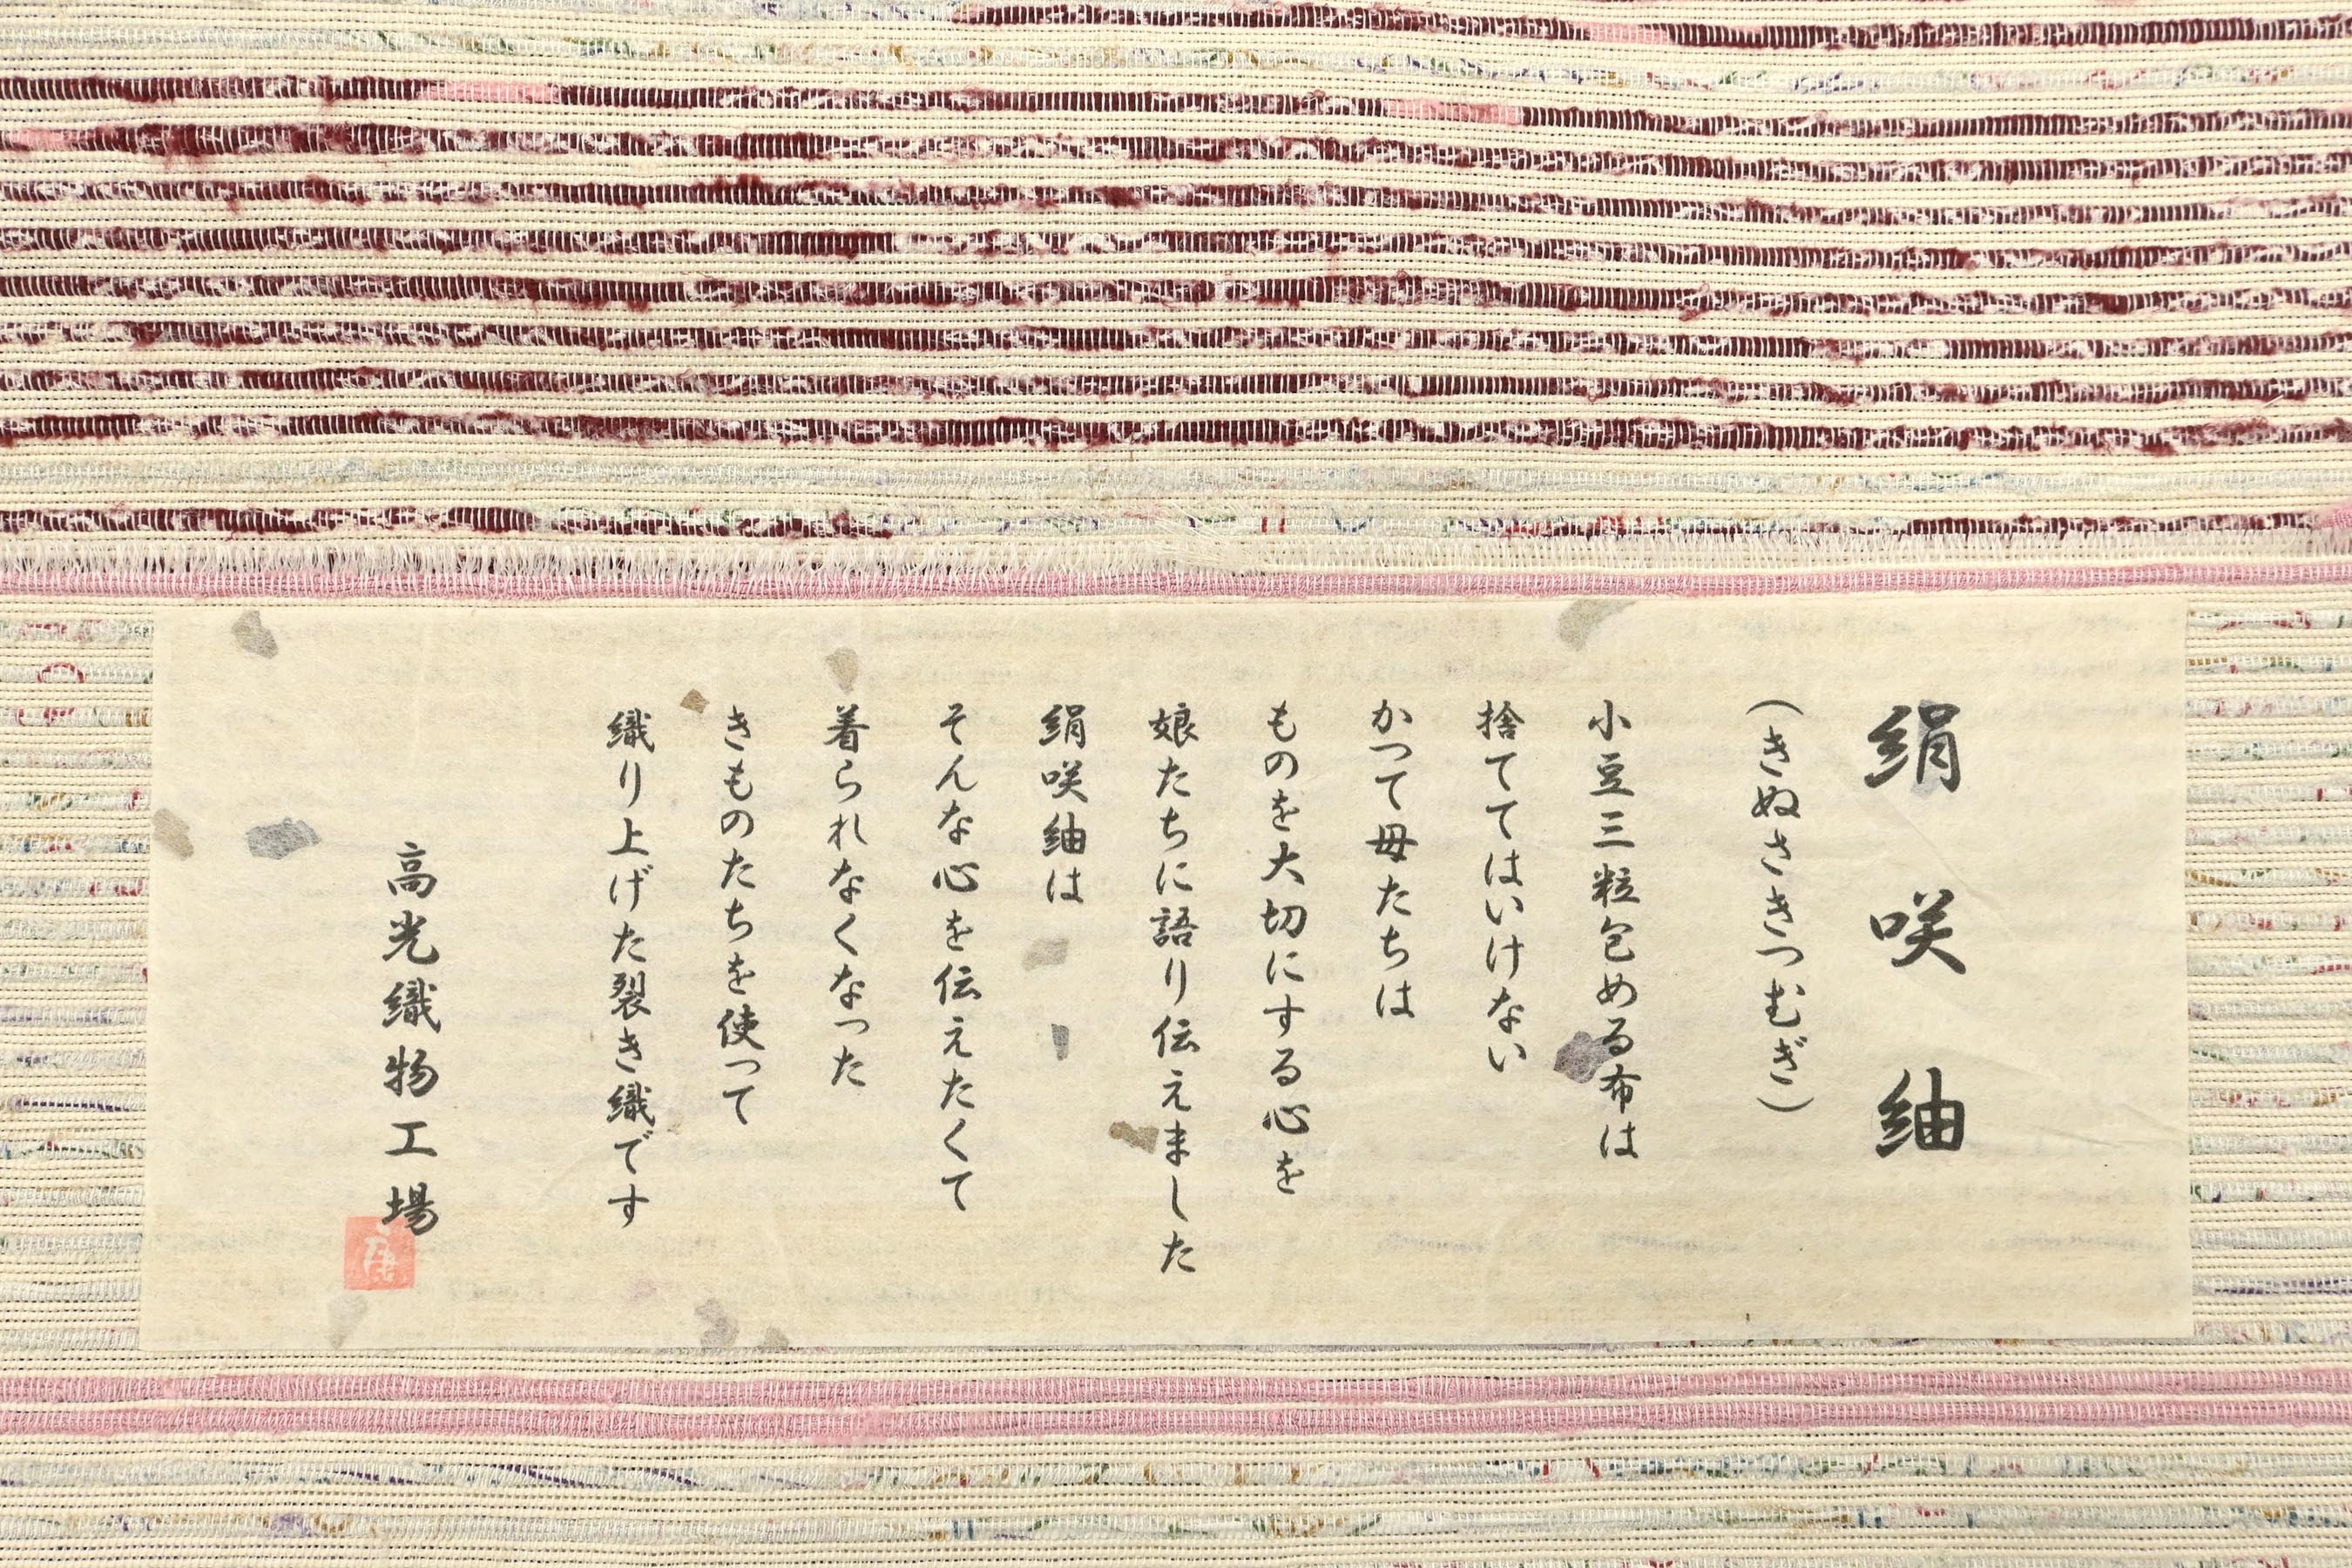 絹咲紬
（きぬさきつむぎ）
小豆三粒包める布は
捨ててはいけない
かつて母たちは
ものを大切にする心を
娘たちに語り伝えました
絹咲紬は
そんな心を伝えたくて
着られなくなった
きものたちを使って
織り上げた裂き織です
高光織物工場